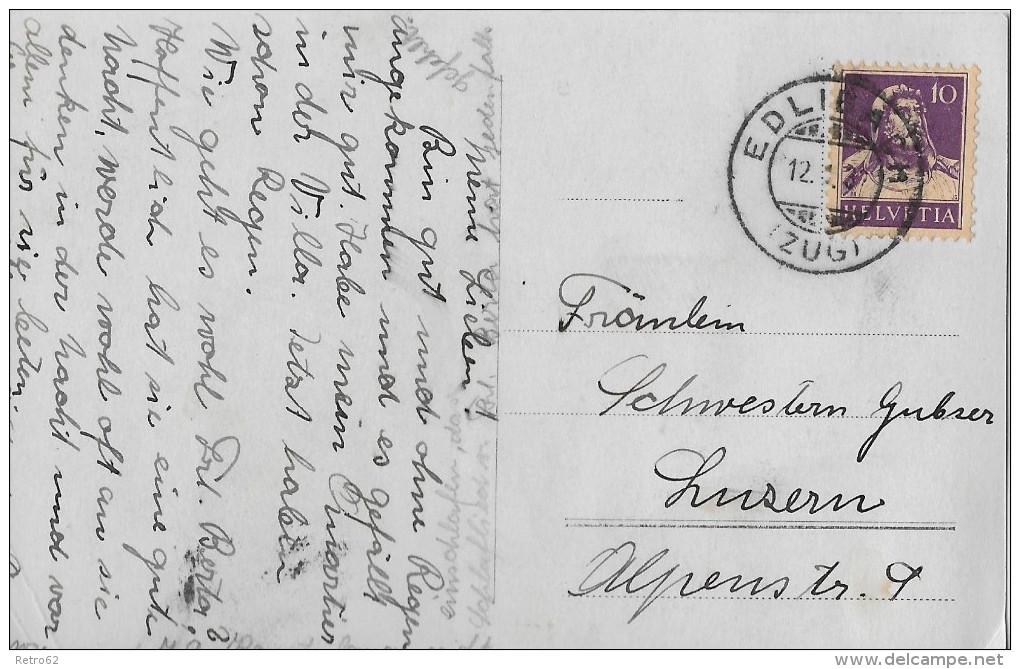 Meine Lieben!
Bin gut und ohne Regen
angekommen und es gefällt
mir gut. Habe mein Quartier
in der Villa. Jetzt haben
schon Regen.
Wie geht es wohl Frl. Berta?
Hoffentlich hat sie eine gute
Nacht, werde wohl oft an sie
denken in der Nacht und vor
allem für sie beten.
einschlafen, dass
EDLIB
12.
(ZUG)
10
HELVETIA
Fräulein
Schwestern Gubser
Luzern
Alpenstr. 9
Retro62
delcampe.net